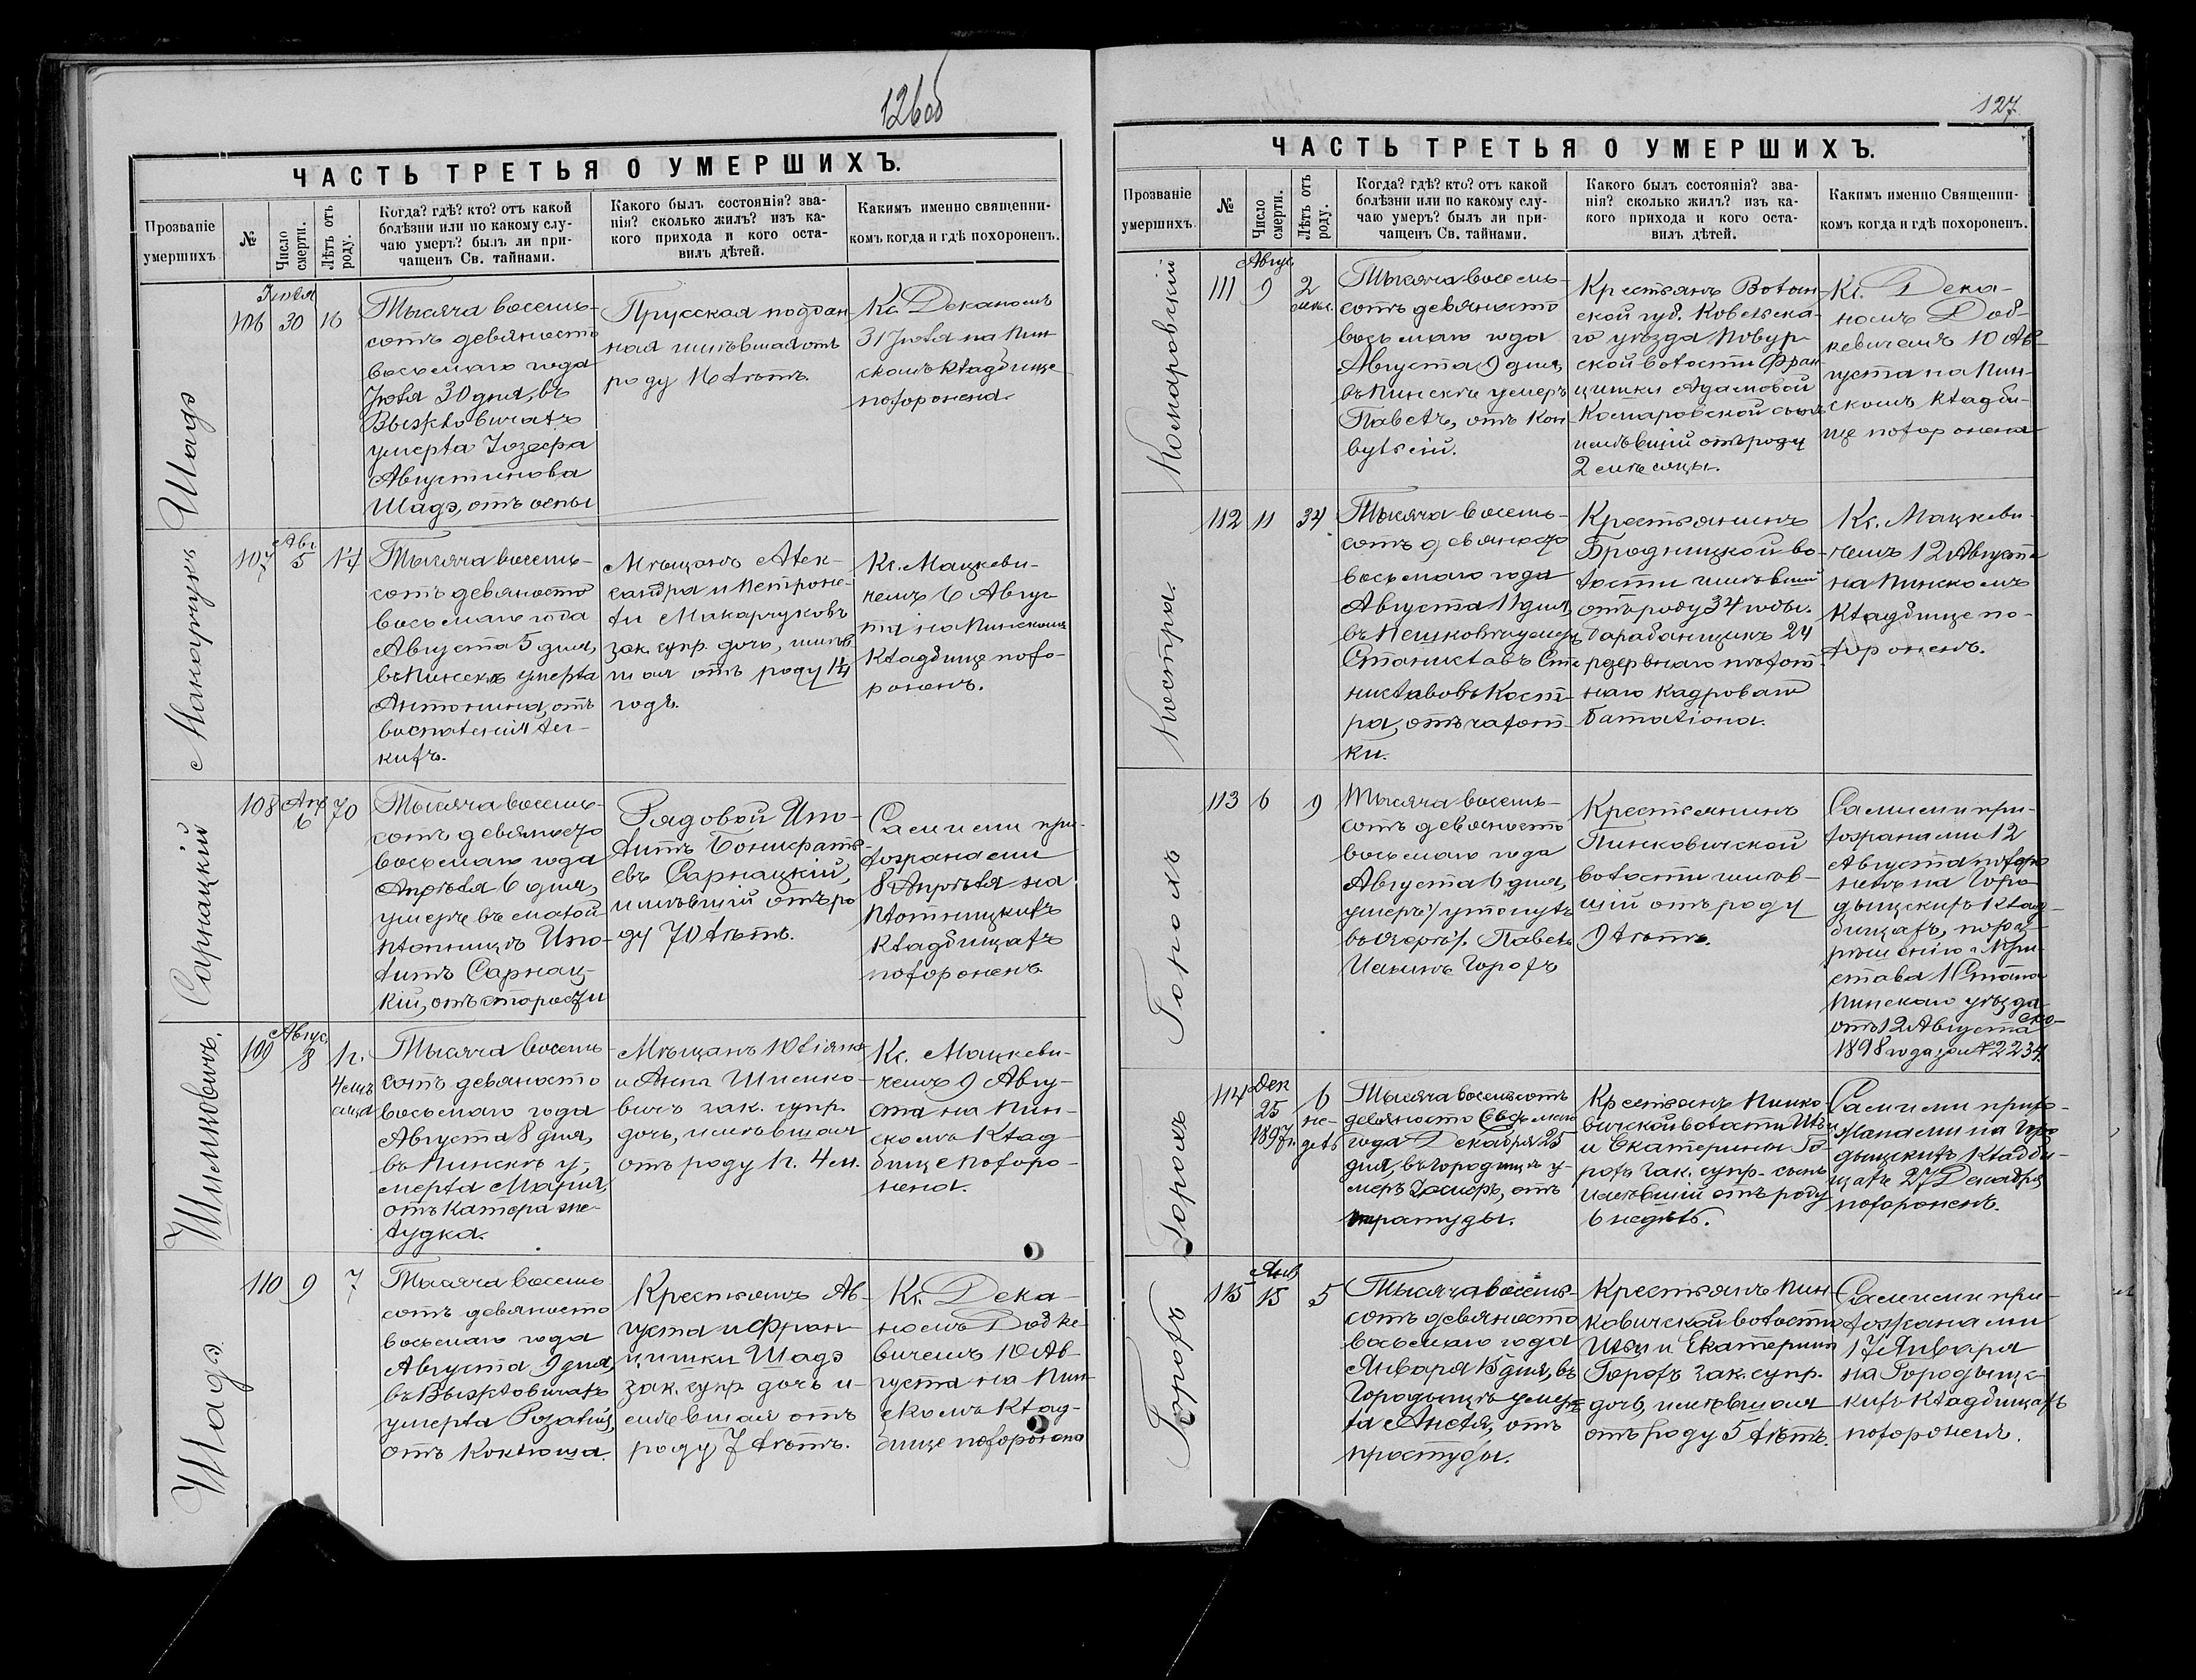 126об
ЧАСТЬ ТРЕТЬЯ О УМЕРШИХЪ.
Прозваніе умершихъ
№
Число смерти.
Лѣтъ отъ роду.
Когда? гдѣ? кто? отъ какой
болѣзни или по какому слу-
чаю умеръ? былъ ли при-
чащенъ Св. тайнами.
Какого былъ состоянія? зва-
нія? сколько жилъ? изъ ка-
кого прихода и кого оста-
вилъ дѣтей.
Какимъ именно священни-
комъ когда и гдѣ похороненъ.
Шадэ
106
Іюля
30
16
Тысяча восемь-
сотъ девяносто
восьмаго года
Іюля 30 дня, въ
Выжловичахъ
умерла Іозефа
Августинова
Шадэ, отъ оспы
Прусская поддан-
ная имѣвшая отъ
роду 16 лѣтъ.
Кс. Деканомъ
31 Іюля на Пин-
скомъ кладбище
похоронена.
Макарчукъ
107
Авг
5
14
Тысяча восемь-
сотъ девяносто
восьмаго года
Августа 5 дня,
въ Пинскѣ умерла
Антонина, отъ
воспаленія лег-
кихъ.
Мѣщанъ Алек-
сандра и Петроне-
ли Макарчуковъ
зак. супр. дочь, имѣв
шая отъ роду 14
годъ.
Кс. Мацкеви-
чемъ 6 Авгус-
та на Пинскомъ
кладбище похо-
роненъ.
Сарнацкій
108
Апр
6
70
Тысяча восемь-
сотъ девяносто
восьмаго года
Апрѣля 6 дня,
умеръ въ малой
Плотницѣ Ипо-
литъ Сарнац-
кій, отъ старости
Рядовой Ипо-
литъ Бонифать-
евъ Сарнацкій,
имѣвшій отъ ро
ду 70 лѣтъ.
Самими при-
хожанами
8 Апрѣля на
Плотницкихъ
кладбищахъ
похороненъ.
Шимковичъ.
109
Август
8
1 г.
4 мѣ
сяца
Тысяча восемь
сотъ девяносто
восьмаго года
Августа 8 дня,
въ Пинскѣ у-
мерла Марія,
отъ катера же-
лудка.
Мѣщанъ Юліяна
и Анны Шимко-
вичъ зак. супр.
дочь, имѣвшая
отъ роду 1 г. 4 м.
Кс. Мацкеви-
чемъ 9 Авгу-
ста на Пин-
скомъ клад-
бище похоро-
нена.
Шадэ
110
9
7
Тысяча восемь
сотъ девяносто
восьмаго года
Августа 9 дня,
въ Выжловичахъ
умерла Розалія,
отъ коклюша.
Крестьянъ Ав-
густа и Фран-
цишки Шадэ
зак. супр. дочь и-
мѣвшая отъ
роду 7 лѣтъ.
Кс. Дека-
номъ Додке-
вичемъ 10 Ав-
густа на Пин-
скомъ клад-
бище похоронена
127
ЧАСТЬ ТРЕТЬЯ О УМЕРШИХЪ.
Прозваніе умершихъ.
№
Число смерти.
Лѣтъ отъ роду.
Когда? гдѣ? кто? отъ какой
болѣзни или по какому слу-
чаю умеръ? былъ ли при-
чащенъ Св. тайнами.
Какого былъ состоянія? зва-
нія? сколько жилъ? изъ ка-
кого прихода и кого оста-
вилъ дѣтей.
Какимъ именно Священни-
комъ когда и гдѣ похороненъ.
Комаровскій
111
Август
9
2
мѣс.
Тысяча восемь-
сотъ девяносто
восьмаго года
Августа 9 дня,
въ Пинскѣ умеръ
Павелъ, отъ кон-
вульсій.
Крестьянъ Волын-
ской губ. Ковельска-
го уѣзда Повур-
ской волости Фран
цишки Адамовой
Комаровской сынъ
имѣвшій отъ роду
2 мѣсяцы.
Кс. Дека-
номъ Дод-
кевичемъ 10 Ав-
густа на Пин-
скомъ кладби-
ще похоронена
Костра.
112
11
34
Тысяча восемь-
сотъ девяносто
восьмаго года
Августа 11 дня,
въ
Станиславъ Ста
ниславовъ Кост-
ра, отъ чахот-
ки.
Крестьянинъ
Бродницкой во-
лости имѣвшій
отъ роду 34 годы.
барабанщикъ 24
резервнаго пѣхот-
наго кадроваго
баталіона.
Кс. Мацкеви-
чемъ 12 Августа
на Пинскомъ
кладбище по-
хороненъ.
113
6
9
Тысяча восемь-
сотъ девяносто
восьмаго года
Августа 6 дня,
умеръ /: утонулъ
въ озерѣ :/ Павелъ
Ильинъ Горохъ
Крестьянинъ
Пинковичской
волости имѣв-
шій отъ роду
9 лѣтъ.
Самими при-
хожанами 12
Августа похоро
ненъ на Горо-
дыщскихъ клад-
бищахъ, по раз-
рѣшенію При-
става 1 Стана
Пинскаго уѣзда
отъ 12 Августа
1898 года за № 2234.
Горохъ
114
Дек
25
1897 г.
6
не-
дѣль
Тысяча восемьсотъ
девяносто седьмаго
года Декабря 25
дня, въ Городищѣ у-
меръ отъ
простуды.
Крестьянъ Пинко-
вичской волости Ильи
и Екатерины Го-
рохъ зак. супр. сынъ
имѣвшій отъ роду
6 недѣль.
Самими прихо-
жанами на Горо
дыщскихъ кладби-
щахъ 27 Декабря
похороненъ.
Горохъ
115
Янв
15
5
Тысяча восемь-
сотъ девяносто
восьмаго года
Января 15 дня, въ
Городыщѣ умер-
ла Анеля, отъ
простуды.
Крестьянъ Пин
ковичской волости
Ильи и Екатерины
Горохъ зак. супр.
дочь, имѣвшая
отъ роду 5 лѣтъ.
Самими при-
хожанами
17 Января
на Городыщс-
кихъ кладбищахъ
похороненъ.